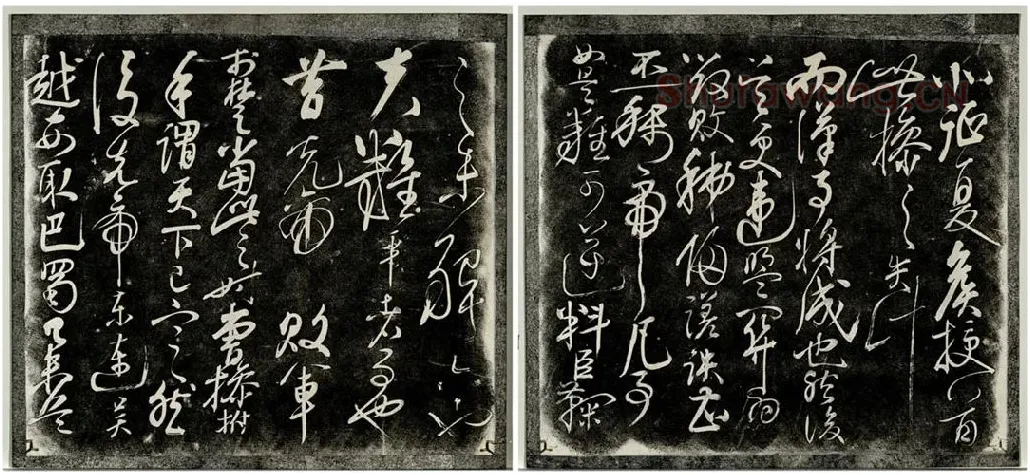 之未解六也
夫難平者事也
昔先帝敗軍
於楚當此之時曹操拊
手謂天下已定然
後先帝東連吳
越西取巴蜀舉兵
北征夏侯授首
此操之失計
而漢事將成也然後
吳更違盟關羽
毀敗秭歸蹉跌曹
丕稱帝凡事
如是難可逆料臣鞠
Shufawang.CN